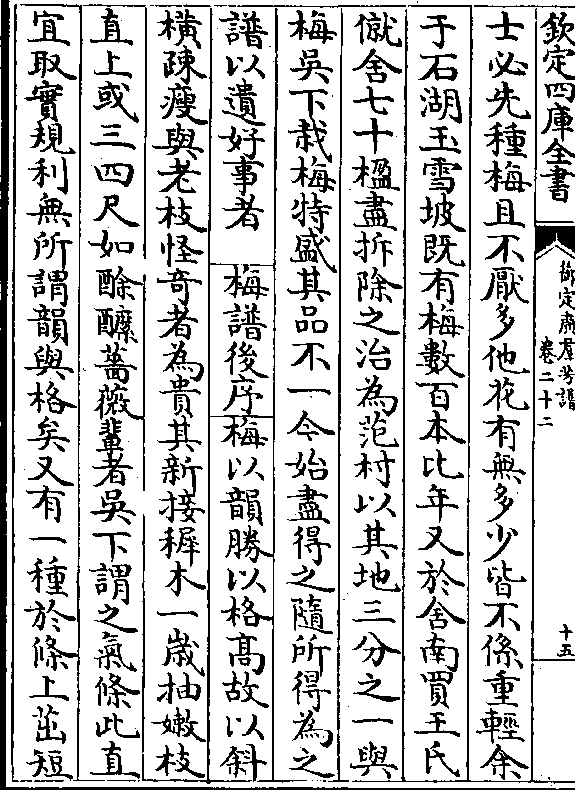 欽定四庫全書
御定廣羣芳譜
卷二十二
十五
士必先種梅且不厭多他花有無多少皆不係重輕余
于石湖玉雪坡既有梅數百本比年又於舍南買王氏
僦舍七十楹盡拆除之治為范村以其地三分之一與
梅吳下栽梅特盛其品不一今始盡得之隨所得為之
譜以遺好事者　梅譜後序梅以韻勝以格高故以斜
橫疎瘦與老枝怪奇者為貴其新接穉木一歲抽嫩枝
直上或三四尺如酴醿薔薇輩者吳下謂之氣條此直
宜取實規利無所謂韻與格矣又有一種於條上茁短